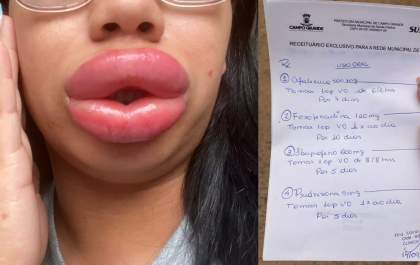 CAMPO GRANDE
PREFEITURA MUNICIPAL DE CAMPO GRANDE
SUS
RECEITUÁRIO EXCLUSIVO PARA A REDE MUNICIPAL DE
USO ORAL
① Cefalexina 500mg
Tomar 1cp VO de 6/6hs
Por 7 dias
② Fexofenadina 120mg
Tomar 1cp VO 1x ao dia
Por 10 dias
③ Ibuprofeno 600mg
Tomar 1cp VO de 8/8hs
Por 5 dias
④ Prednisona 5mg
Tomar 1cp VO 1x ao dia
Por 5 dias